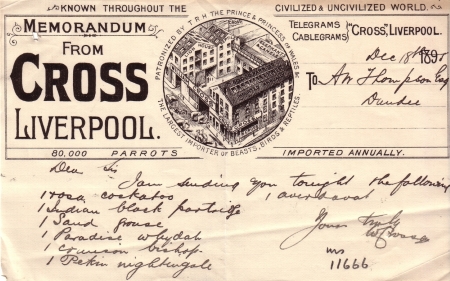 KNOWN THROUGHOUT THE CIVILIZED & UNCIVILIZED WORLD.
MEMORANDUM
FROM
CROSS
LIVERPOOL.
PATRONIZED BY T.R.H. THE PRINCE & PRINCESS OF WALES &c
THE LARGEST IMPORTER OF BEASTS, BIRDS & REPTILES.
TELEGRAMS
CABLEGRAMS
"CROSS", LIVERPOOL.
Dec 18 189
To A W Thompson Esq
Dundee
80,000 PARROTS IMPORTED ANNUALLY.
Dear Sir
I am sending you tonight the following
1 rosa cockatoo 1 averdavat
1 Indian black partridge
1 Sand grouse
1 Paradise whydah
1 crimson bishop
1 Pekin nightingale
Yours truly
W Cross
11666